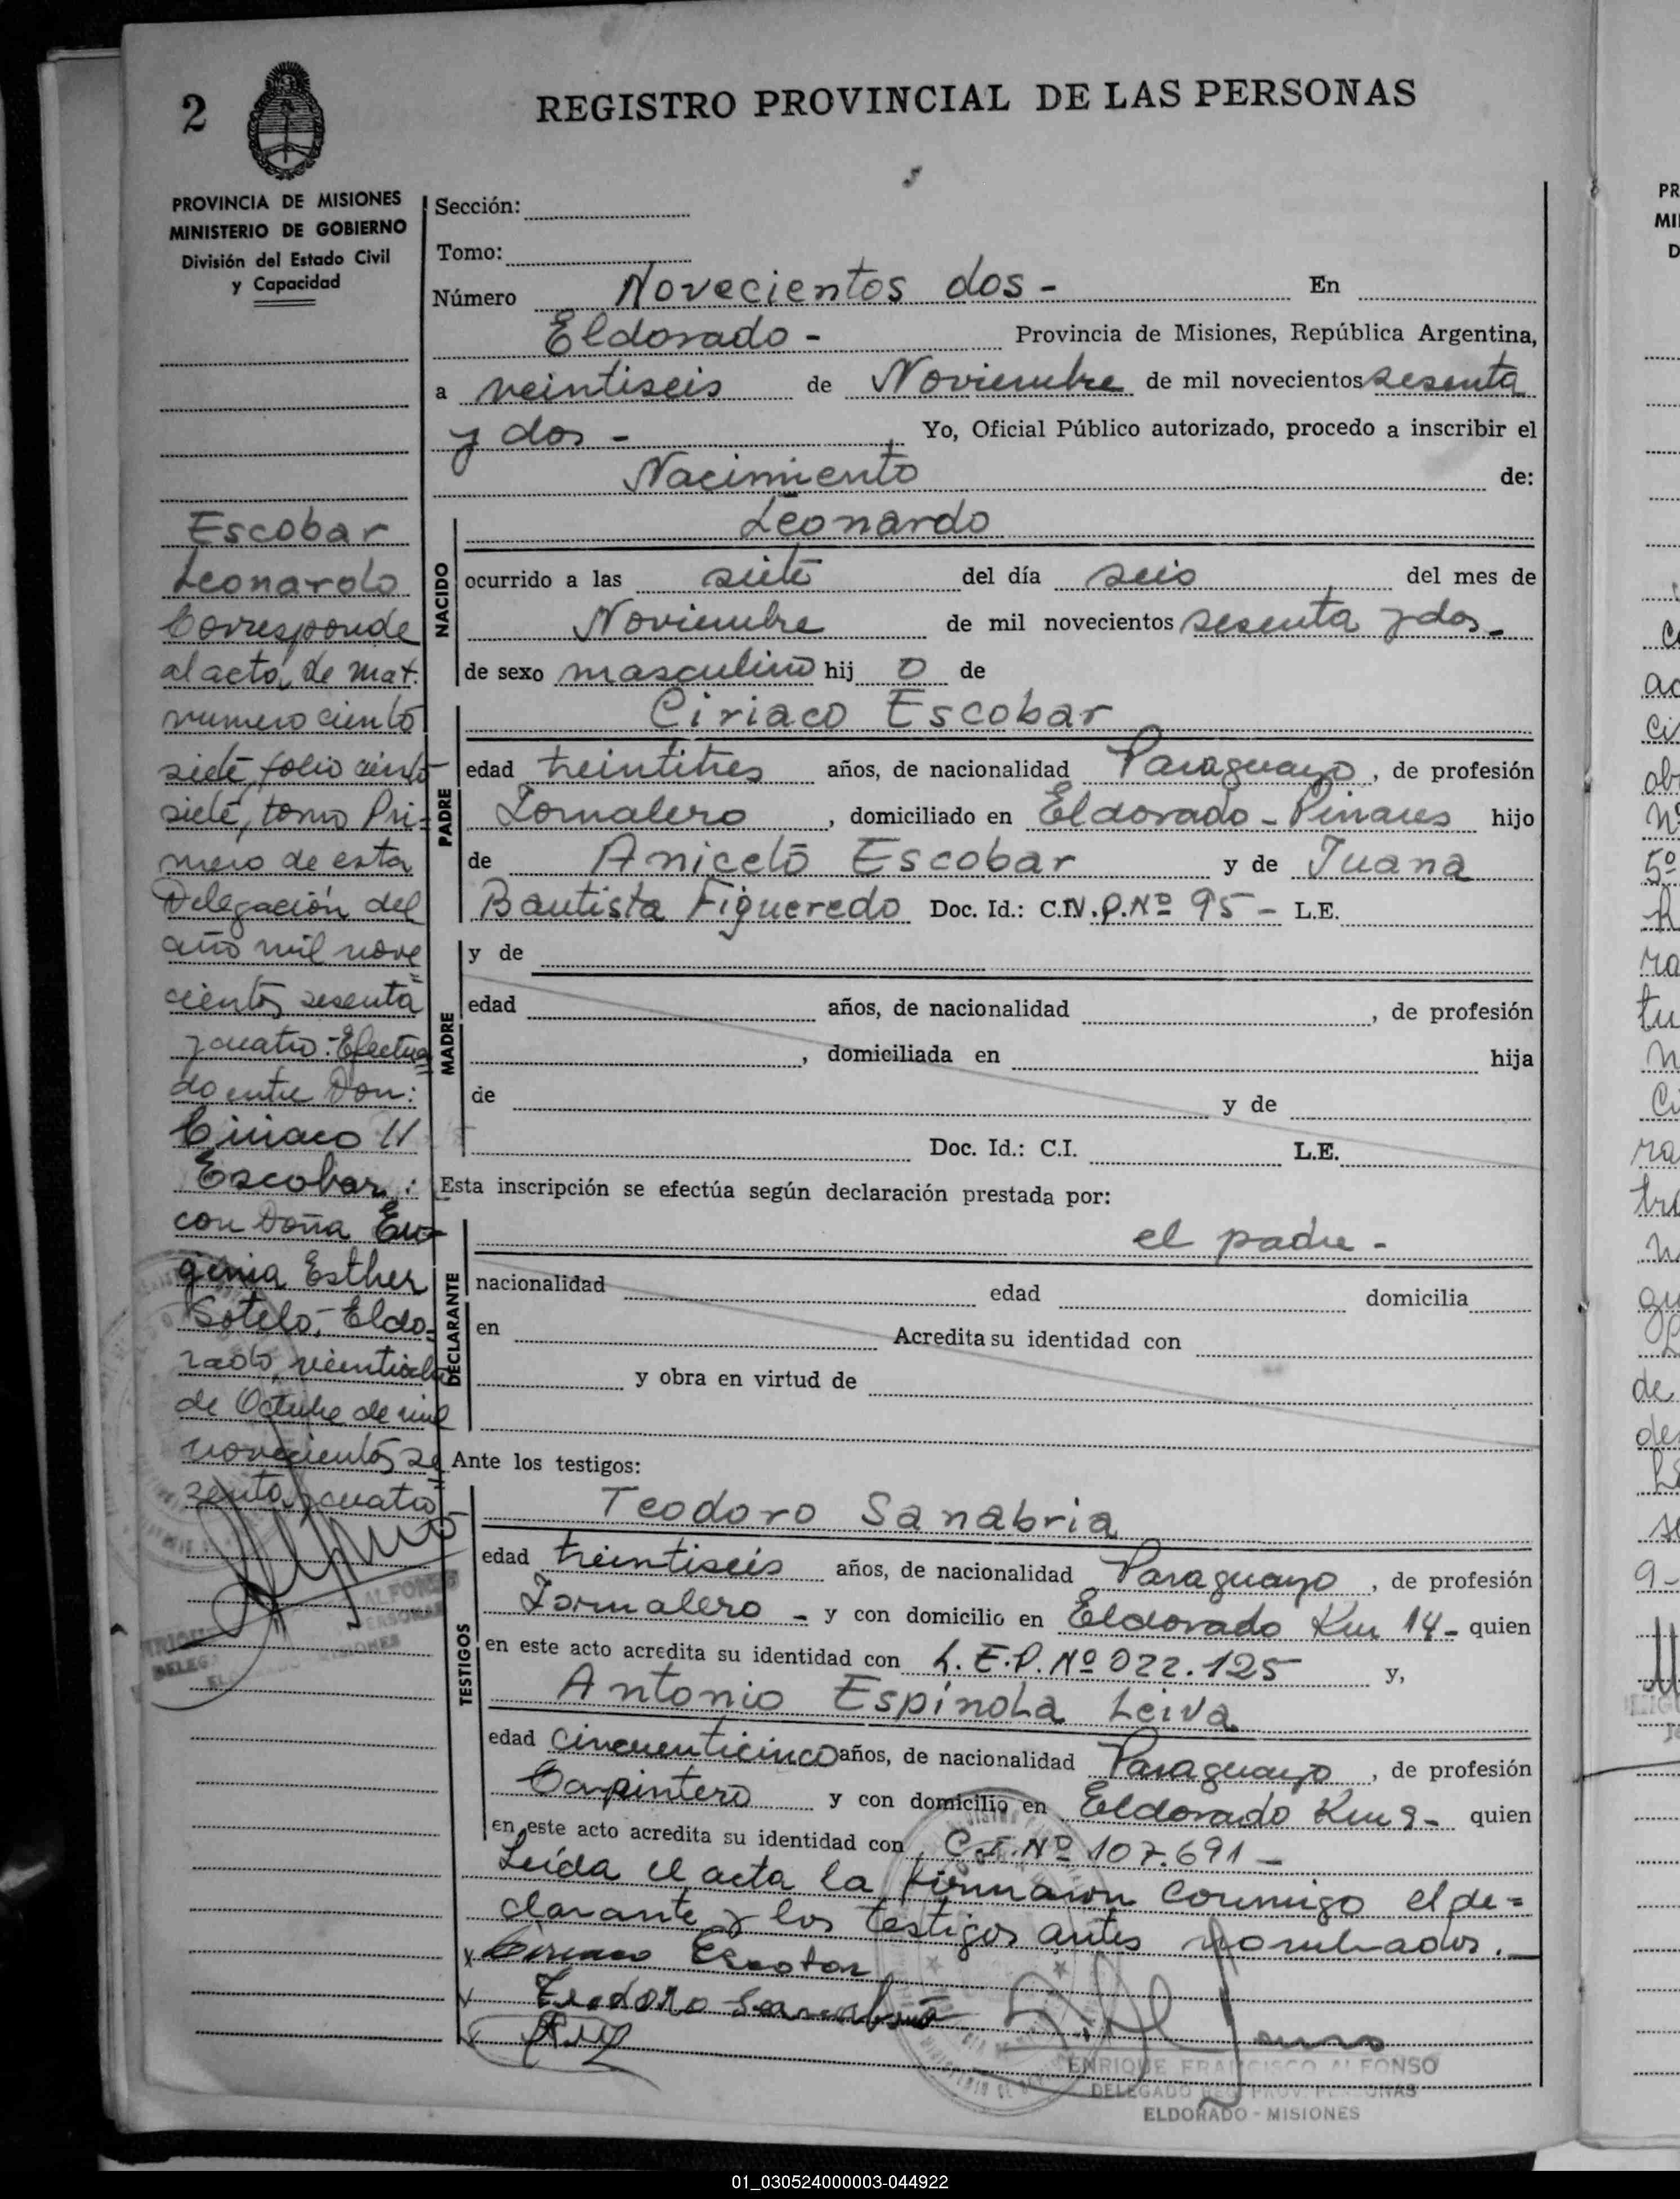 2
REGISTRO PROVINCIAL DE LAS PERSONAS
PROVINCIA DE MISIONES
MINISTERIO DE GOBIERNO
División del Estado Civil
y Capacidad
Escobar
Leonardo
Corresponde
al acta de mat.
numero ciento
siete folio ciento
siete, tomo Pri-
mero de esta
Delegación del
año mil nove=
cientos sesenta
y cuatro.- Efectua=
do entre Don:
Ciriaco
Escobar:
con Doña Eu=
genia Esther
Sotelo,- Eldo=
rado,
de Octubre de mil
novecientos se=
senta y cuatro
Sección:
Tomo:
Número Novecientos dos - En
Eldorado - Provincia de Misiones, República Argentina,
a veintiseis de Noviembre de mil novecientos sesenta
y dos - Yo, Oficial Público autorizado, procedo a inscribir el
Nacimiento de:
NACIDO
Leonardo
ocurrido a las siete del día seis del mes de
Noviembre de mil novecientos sesenta y dos.
de sexo masculino hij o de
PADRE
Ciriaco Escobar
edad treintitres años, de nacionalidad Paraguayo, de profesión
Jornalero, domiciliado en Eldorado - Pinares hijo
de Aniceto Escobar y de Juana
Bautista Figueredo Doc. Id.: C.N.P.Nº 95 - L.E.
MADRE
y de
edad años, de nacionalidad , de profesión
, domiciliada en hija
de y de
Doc. Id.: C.I. L.E.
Esta inscripción se efectúa según declaración prestada por:
DECLARANTE
el padre -
nacionalidad edad domicilia
en Acredita su identidad con
y obra en virtud de
Ante los testigos:
TESTIGOS
Teodoro Sanabria
edad treintiseis años, de nacionalidad Paraguayo, de profesión
Jornalero - y con domicilio en Eldorado Km 14 - quien
en este acto acredita su identidad con L.E.P. Nº 022.125 y,
Antonio Espínola Leiva
edad cincuenticinco años, de nacionalidad Paraguayo, de profesión
Carpintero y con domicilio en Eldorado Km 9 - quien
en este acto acredita su identidad con C.I. Nº 107.691 -
Leída el acta la firmaron conmigo el de=
clarante y los testigos antes nombrados.
x Ciriaco Escobar
x Teodoro Sanabria
ENRIQUE FRANCISCO ALFONSO
DELEGADO REG. PROV. PERSONAS
ELDORADO - MISIONES
01_030524000003-044922